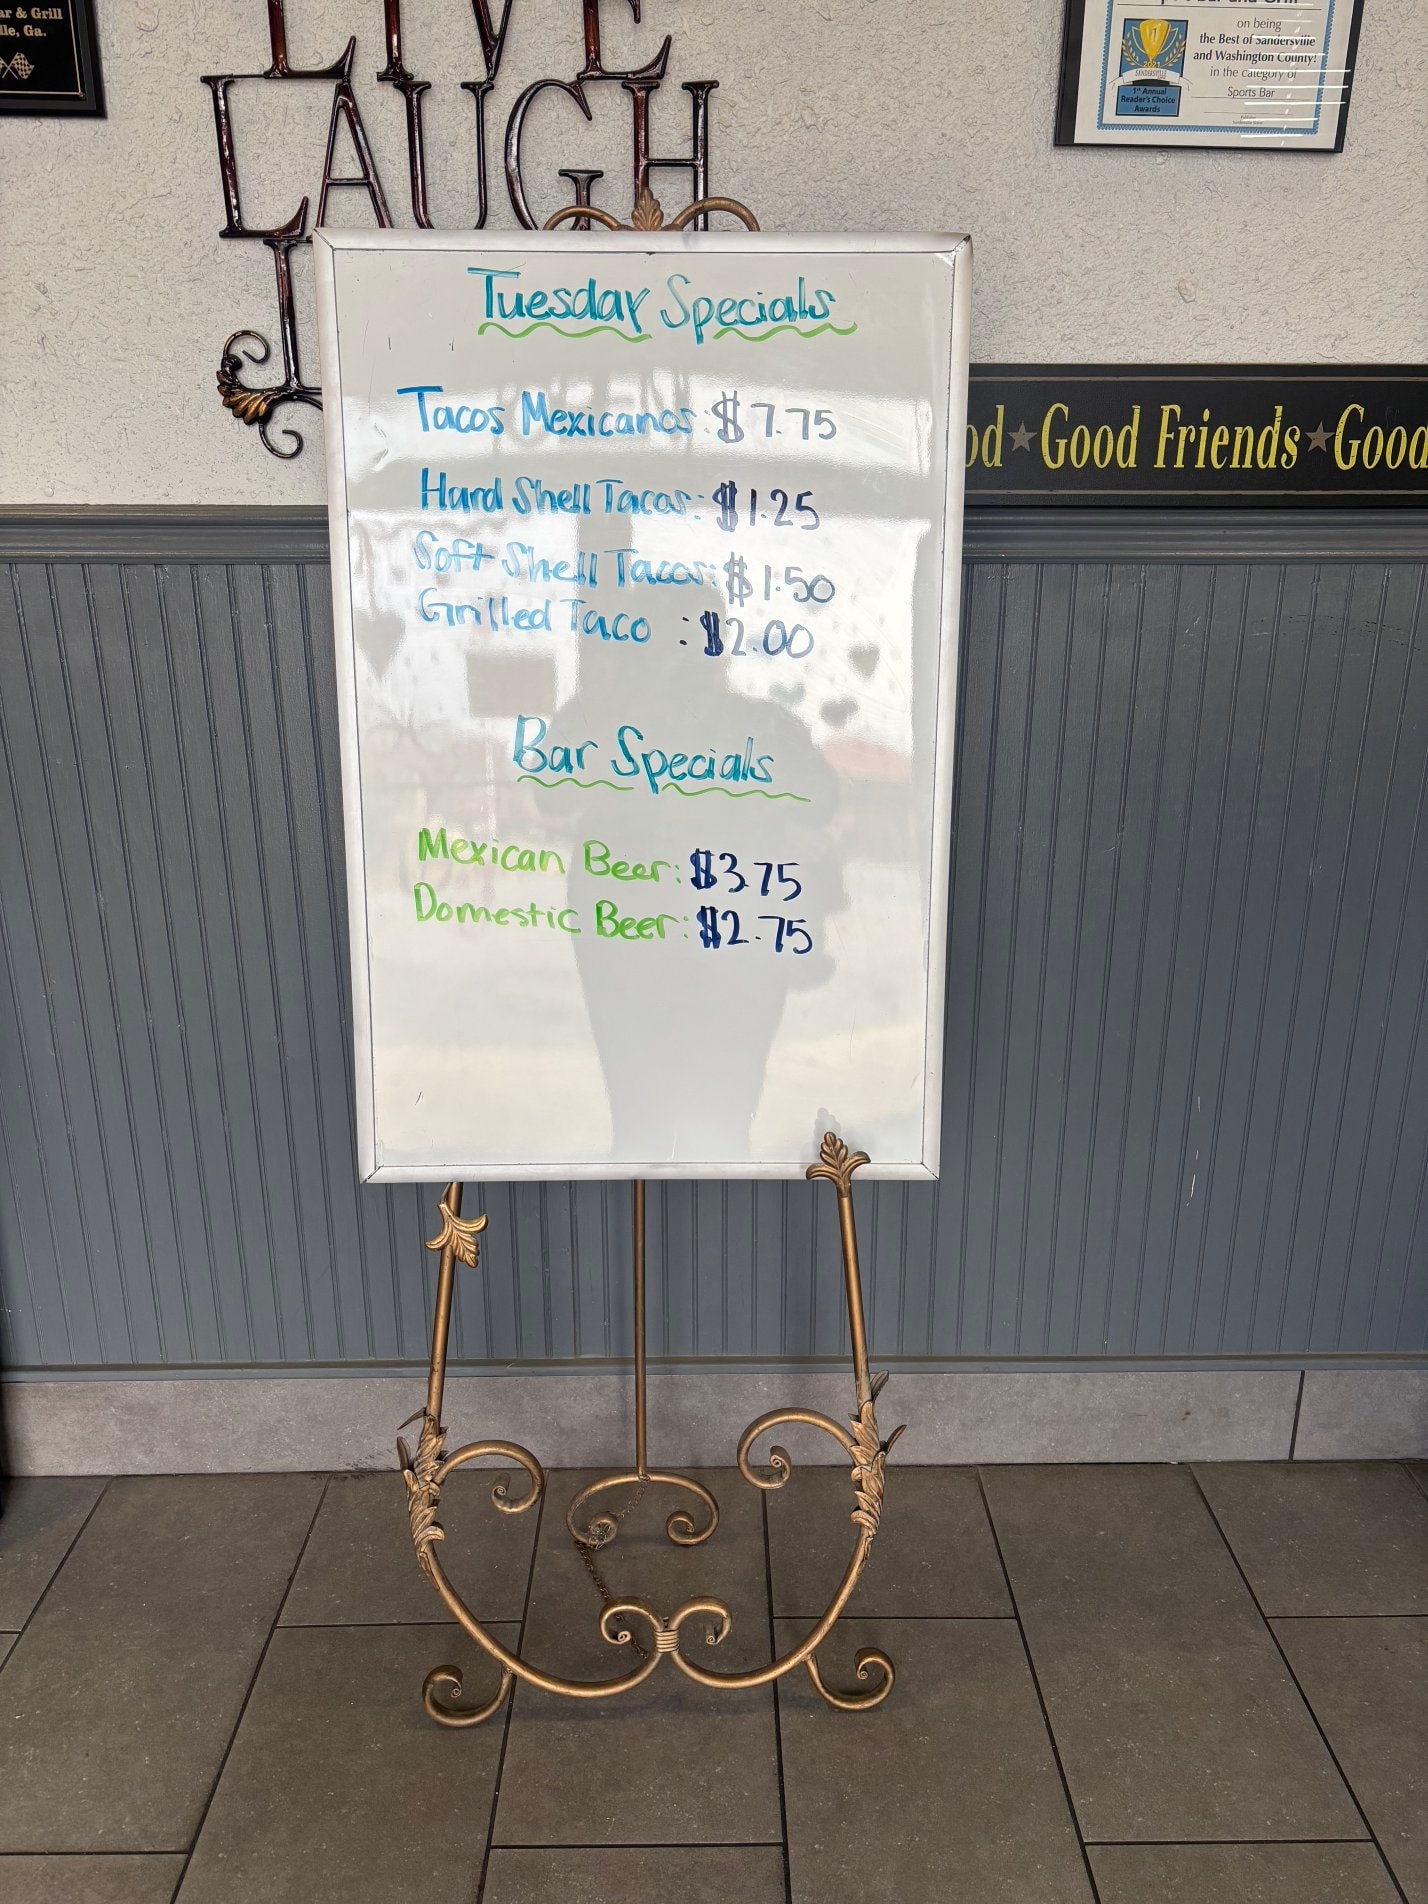 ar & Grill
lle, Ga.
LIVE
LAUGH
on being
the Best of Sandersville
and Washington County!
in the category of
Sports Bar
2021
SANDERSVILLE
1st Annual
Reader's Choice
Awards
Tuesday Specials
Tacos Mexicanos: $7.75
Hard Shell Tacos: $1.25
Soft Shell Tacos: $1.50
Grilled Taco : $2.00
Bar Specials
Mexican Beer: $3.75
Domestic Beer: $2.75
od ★ Good Friends ★ Good